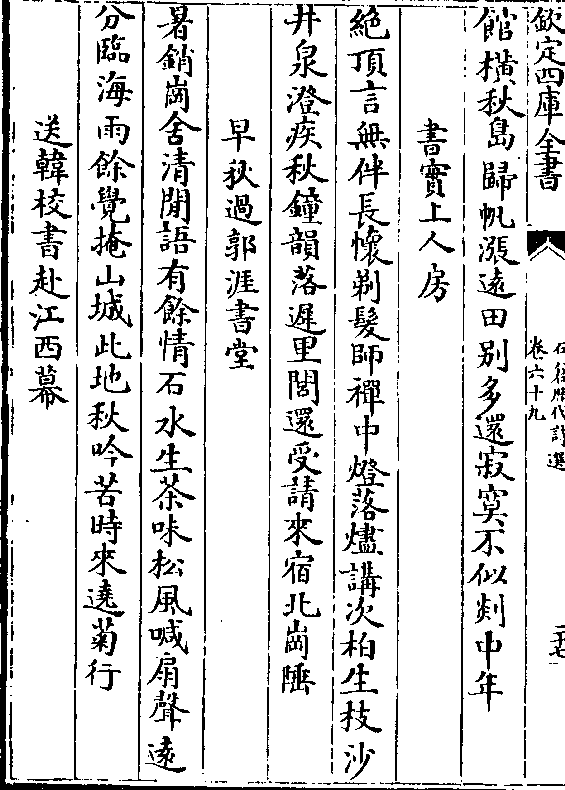 欽定四庫全書
石倉歷代詩選
卷六十九
二十七
館橫秋島歸帆漲遠田别多還寂寞不似剡中年
書實上人房
絶頂言無伴長懷剃髮師禪中燈落燼講次柏生枝沙
井泉澄疾秋鐘韻落遲里閭還受請來宿北崗陲
早秋過郭涯書堂
暑銷崗舍清閒語有餘情石水生茶味松風喊扇聲遠
分臨海雨餘覺掩山城此地秋吟苦時來遶菊行
送韓校書赴江西幕